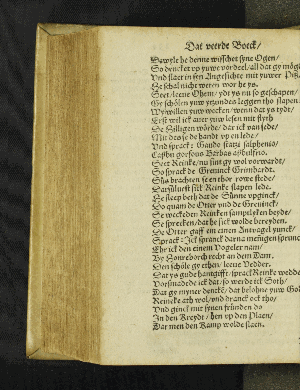 Dat veerde Boeck/
Dewyle he denne wisschet syne Ogen/
So dencket up yuwe vordeel/ all dat gy möge
Und slaet in syn Angesichte mit yuwer Pisse
He schal nicht weten wor he ys.
Seet leeve Ohem/ ydt ys nu so geschapen/
Gy schölen yuw yrgendes leggen tho slapen
Wy willen yuw wecken/ wenn dat ys tydt/
Erst wil ick aver yuw lesen mit flyth
De Hilligen wörde/ dar ick van sede
Mit des he de handt up en lede/
Und sprack: Gaudo statzi salphenio/
Casbu gorfons
Seet Reinke/ nu sint gy wol vorwardt/
So sprack de Greuinck Grimbardt.
Süs brachten se en thor rowe stede/
Darsülvest sick Reinke slapen lede.
He sleep beth dat de Sünne upginck/
Do quam de Otter und de Greuinck/
Se weckeden Reinken sampt
Se spreken/ dat he sick wolde bereyden.
De Otter gaff em einen Antvagel yunck/
Sprack: Ick spranck darna mennigen sprunck
Ehr ick den einem Vogeler nam/
By Honreborch recht an dem Dam/
Den schöle gy ethen/ leeve Vedder.
Dat ys gude hantgifft/ sprack Reinke wedder
Vorsmadede ick dat/ so werde ick Soth/
Dat gy myner dencke/ dat belohne yuw Godt
Reineke ath wol/ und dranck ock tho/
Und ginck mit synen fründen do
In den Kreydt/ hen up den Plaen/
Dar men den Kamp wolde slaen.